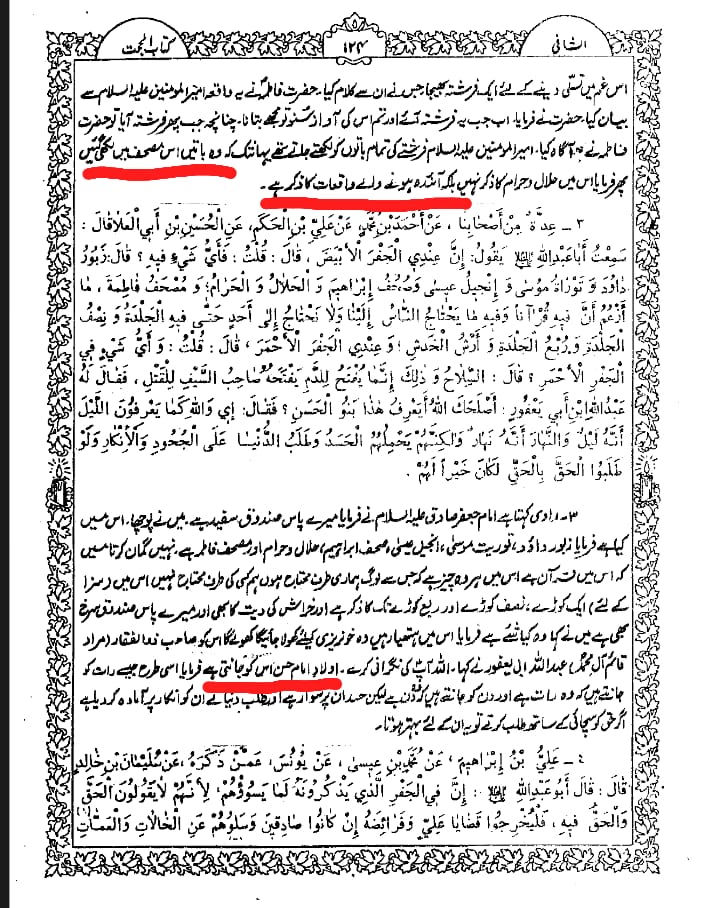 الشافی
۱۲۴
کتاب الحجت
اس غم میں تسلّی دینے کے لئے ایک فرشتہ بھیجا جس نے ان سے کلام کیا۔ حضرت فاطمہؑ نے یہ واقعہ امیرالمومنین علیہ السلام سے
بیان کیا، حضرت نے فرمایا۔ اب جب یہ فرشتہ آئے اور تم اس کی آواز سنو تو مجھے بتانا۔ چنانچہ جب پھر فرشتہ آیا تو حضرت
فاطمہ نے آگاہ کیا۔ امیرالمومنین علیہ السلام فرشتے کی تمام باتوں کو لکھتے جاتے تھے یہاں تک کہ وہ باتیں اس مصحف میں لکھی گئیں
پھر فرمایا اس میں حلال و حرام کا ذکر نہیں بلکہ آئندہ ہونے والے واقعات کا ذکر ہے۔
٣ - عِدَّةٌ مِنْ أَصْحَابِنَا ، عَنْ أَحْمَدَ بْنِ مُحَمَّدٍ، عَنْ عَلِيِّ بْنِ الْحَكَمِ، عَنِ الْحُسَيْنِ بْنِ أَبِي الْعَلَاءِ قَالَ :
سَمِعْتُ أَبَا عَبْدِ اللهِ يَقُولُ: إِنَّ عِنْدِي الْجَفْرَ الْأَبْيَضَ ، قَالَ : قُلْتُ : فَأَيُّ شَيْءٍ فِيهِ ؟ قَالَ: زَبُورُ
دَاوُدَ وَ تَوْرَاةُ مُوسَى وَ إِنْجِيلُ عِيسَى وَصُحُفُ إِبْرَاهِيمَ وَ الْحَلَالُ وَ الْحَرَامُ؛ وَ مُصْحَفُ فَاطِمَةَ ، مَا
أَزْعُمُ أَنَّ فِيهِ قُرْآناً وَفِيهِ مَا يَحْتَاجُ النَّاسُ إِلَيْنَا وَلَا نَحْتَاجُ إِلَى أَحَدٍ حَتَّى فِيهِ الْجَلْدَةُ وَ نِصْفُ
الْجَلْدَةِ وَ رُبْعُ الْجَلْدَةِ وَ أَرْشُ الْخَدْشِ ؛ وَ عِنْدِي الْجَفْرَ الْأَحْمَرَ ، قَالَ : قُلْتُ : وَ أَيُّ شَيْءٍ فِي
الْجَفْرِ الْأَحْمَرِ ؟ قَالَ : السِّلَاحُ وَ ذَلِكَ إِنَّمَا يُفْتَحُ لِلدَّمِ يَفْتَحُهُ صَاحِبُ السَّيْفِ لِلْقَتْلِ ، فَقَالَ لَهُ
عَبْدُ اللهِ ابْنُ أَبِي يَعْفُورٍ : أَصْلَحَكَ اللهُ أَيَعْرِفُ هَذَا بَنُو الْحَسَنِ ؟ فَقَالَ: إِي وَاللهِ كَمَا يَعْرِفُونَ اللَّيْلَ
أَنَّهُ لَيْلٌ وَ النَّهَارَ أَنَّهُ نَهَارٌ وَلَكِنَّهُمْ يَحْمِلُهُمُ الْحَسَدُ وَ طَلَبُ الدُّنْيَا عَلَى الْجُحُودِ وَ الْإِنْكَارِ وَلَوْ
طَلَبُوا الْحَقَّ بِالْحَقِّ لَكَانَ خَيْراً لَهُمْ .
۳۔ راوی کہتا ہے امام جعفر صادق علیہ السلام نے فرمایا میرے پاس صندوق سفید ہے۔ میں نے پوچھا۔ اس میں
کیا ہے فرمایا زبور داؤد، توریت موسیٰ، انجیل عیسیٰ، صحف ابراہیم، حلال و حرام اور مصحف فاطمہ ہے۔ نہیں گمان کرتا میں
کہ اس میں قرآن ہے اس میں ہر وہ چیز ہے کہ جس سے لوگ ہماری طرف محتاج ہوں ہم کسی کی طرف محتاج نہیں اس میں (سزا
کے لئے) ایک کوڑے، نصف کوڑے اور ربع کوڑے تک کا ذکر ہے اور خراش کی دیت کا بھی اور میرے پاس صندوق سرخ
بھی ہے میں نے کہا وہ کیا شئے ہے فرمایا اس میں ہتھیار ہیں وہ خونریزی کیلئے کھولا جائیگا کھولے گا اس کو صاحب ذوالفقار (مراد
قائم آل محمدؐ) عبداللہ ابن ابی یعفور نے کہا۔ اللہ آپ کی نگرانی کرے۔ اولاد امام حسن اس کو جانتی ہے فرمایا اسی طرح جیسے رات کو
جانتے ہیں کہ وہ رات ہے اور دن کو جانتے ہیں کہ دن ہے لیکن حسد ان پر سوار ہے اور طلب دنیا نے ان کو انکار پر آمادہ کر دیا ہے
اگر حق کو سچائی کے ساتھ طلب کرتے تو یہ ان کے لئے بہتر ہوتا۔
٤ - عَلِيُّ بْنُ إِبْرَاهِيمَ، عَنْ مُحَمَّدِ بْنِ عِيسَى ، عَنْ يُونُسَ، عَمَّنْ ذَكَرَهُ ، عَنْ سُلَيْمَانَ بْنِ خَالِدٍ
قَالَ: قَالَ أَبُو عَبْدِ اللهِ : إِنَّ فِي الْجَفْرِ الَّذِي يَذْكُرُونَهُ لَمَا يَسُوؤُهُمْ، لِأَنَّهُمْ لَا يَقُولُونَ الْحَقَّ
وَالْحَقُّ فِيهِ ، فَلْيُخْرِجُوا قَضَايَا عَلِيٍّ وَ فَرَائِضَهُ إِنْ كَانُوا صَادِقِينَ وَ سَلُوهُمْ عَنِ الْخَالَاتِ وَ الْعَمَّاتِ